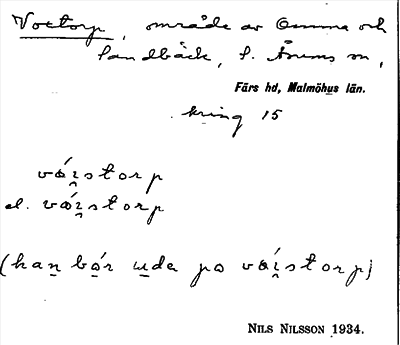 Voetorp, område av Omma och
Sandbäck, S. Årums sn,
Färs hd, Malmöhus län.
kring 15
vói̯storp
el. vǿi̯storp
(han bor uda po vói̯storp)
NILS NILSSON 1934.